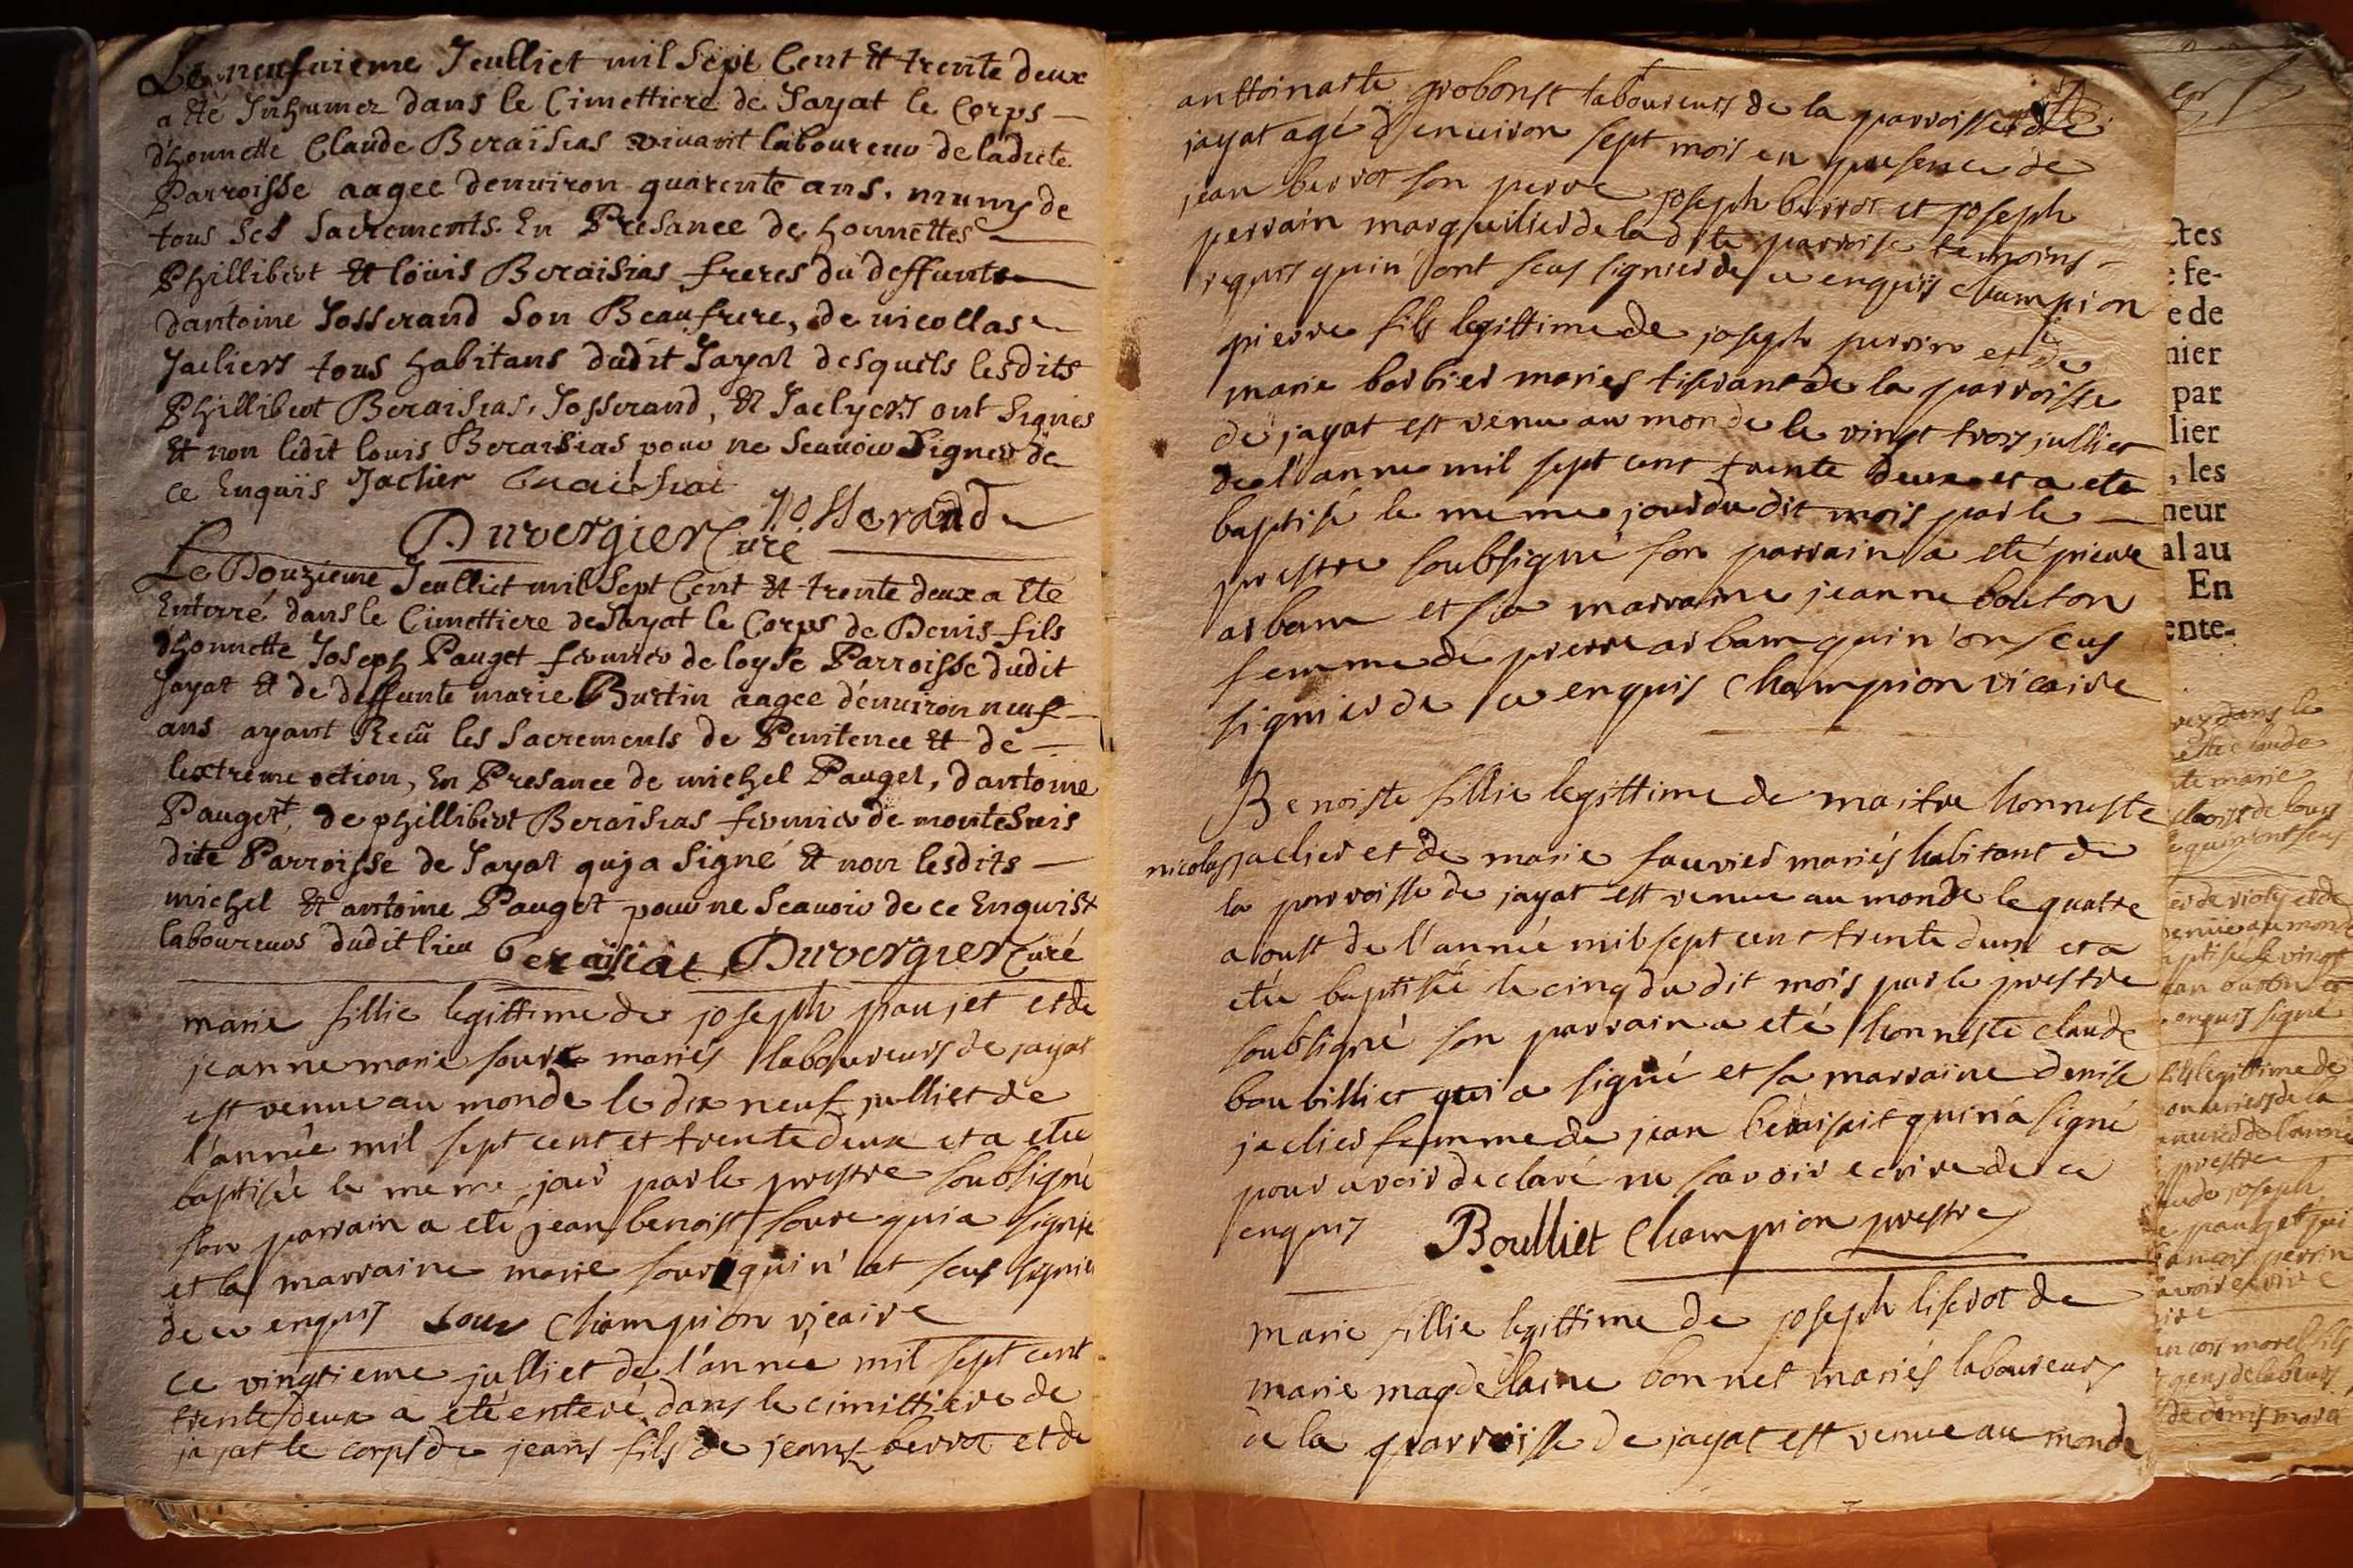 Le neufuieme Jeulliet mil Sept Cent Et trente deux
a Eté Inhumez dans le Cimettiere de Jayat le Corps
d'honnette Claude Beraisias vivant laboureur de ladite
Parroisse aagee denuiron quarente ans, muny de
tous Ses Sacrements. En Presance de honnettes
Phillibert Et loüis Beraisias freres du deffunt
dantoine Josserand Son Beaufrere, de nicollas
Jacliers tous habitans dudit Jayat desquels lesdits
Phillibert Beraisias, Josserand, Et Jaclyers ont Signés
Et non ledit louis Beraisias pour ne Scauoir Signer de
ce Enquis Jaclier Beraisiat
Josserand
Duvergier Curé
Le Douzieme Jeulliet mil Sept Cent Et trente deux a Eté
Enterré dans le Cimettiere de Jayat le Corps de Denis fils
dhonnette Joseph Pauget fermier de loyse Parroisse dudit
Jayat Et de deffunte marie Burtin aagee d'enuiron neuf
ans ayant Recü les Sacrements de Penitence Et de
lextreme oction, En Presance de michel Pauget, dantoine
Pauget, de phillibert Beraisias fermier de monteSuis
dite Parroisse de Jayat quja Signé Et non lesdits
michel Et antoine Pauget pour ne Scauoir de ce Enquist
laboureurs dudit lieu Beraisiat Duvergier Curé
marie fillie legittime de joseph paujet et de
jeanne marie sour mariés laboureurs de jayat
est venue au monde le dix neuf julliet de
l'année mil sept cent et trente deux et a etee
baptisée le meme jour par le prestre soubsigné
son parrain a eté jean benoist soure qui a signie
et la marraine marie sour quin' at seus signier
de ce enquis sour Champion vicaire
ce vingtieme julliet de l'année mil sept cent
trente deux a eté enteré dans le cimittiere de
jayat le corps de jeans fils de jeans berrot et de
anttoinaste grobonst laboureurs de la parroisse de
jayat agé d'enuiron sept mois en presence de
jean berrot son perre joseph berrot et joseph
perrain marguillier de la dite parroisse temoins
requis quin'ont seus signier de ce enquis Champion
pierre fils legittime de joseph perrin et de
marie barbier mariés tiserant de la parroisse
de jayat est venu au monde le vingt trois julliet
de l'anne mil sept cent trente deux et a eté
baptisé le meme jour du dit mois par le
prestre soubsigné son parrain a eté pierre
arbam et sa marraine jeanne bouton
femme de pierre arbam quin'on seus
signier de ce enquis Champion vicaire
Benoiste fillie legittime de maitre honneste
nicolas jaclier et de marie fauvier mariés habitant de
la parroisse de jayat est venue au monde le quatre
a oust de l'année mil sept cent trente deux et a
etée baptisée le cinq du dit mois par le prestre
soubsigné son parrain a eté honneste claude
boubilliet qui a signé et sa marraine denise
jaclier femme de jean beraisait quin'a signé
pour avoir declaré ne scavoir ecrire de ce
enquis Boulliet Champion prestre
marie fillie legittime de joseph liserot de
marie magdelaine bonnet mariés laboureurs
de la parroisse de jayat est venue au monde
tes
e fe-
e de
nier
par
lier
, les
neur
al au
En
ente-